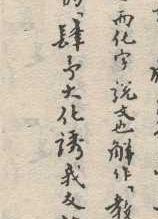 而化字說文也解作「教
「肆予大化誘我友